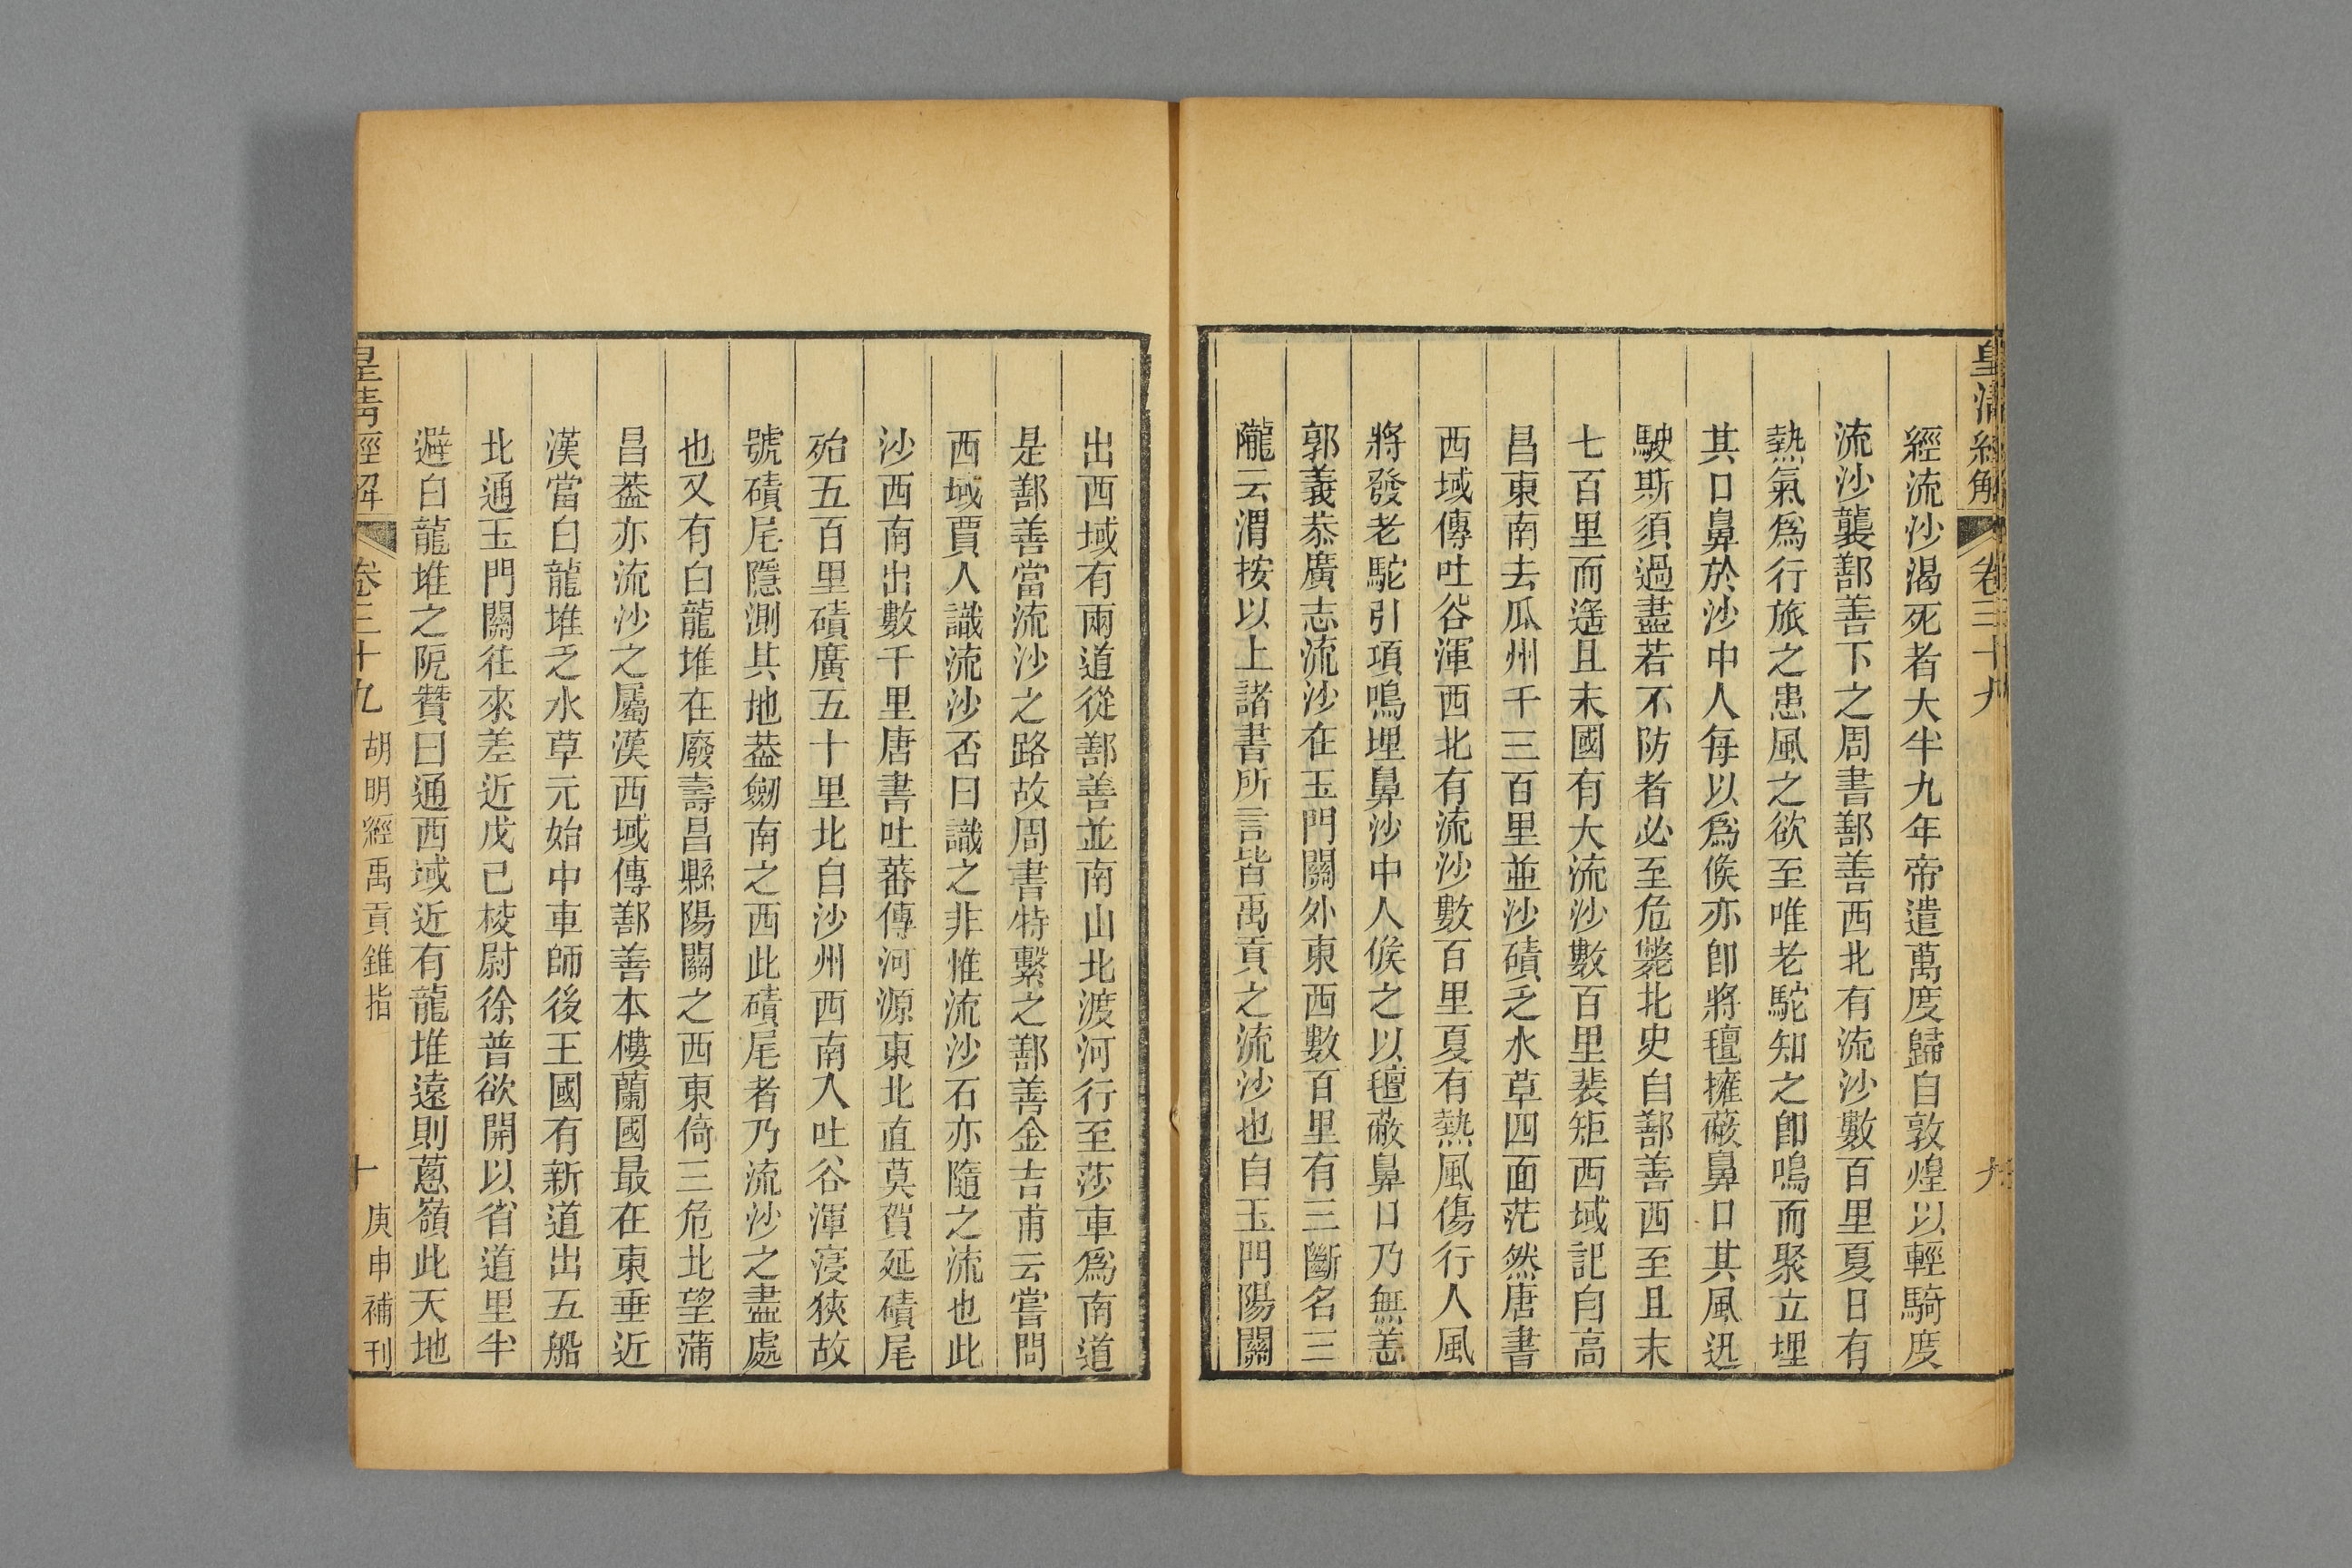 皇清經解 卷三十九 九
經流沙渴死者大半九年帝遣萬度歸自敦煌以輕騎度
流沙襲鄯善下之周書鄯善西北有流沙數百里夏日有
熱氣爲行旅之患風之欲至唯老駝知之卽鳴而聚立埋
其口鼻於沙中人每以爲候亦卽將氊擁蔽鼻口其風迅
駛斯須過盡若不防者必至危斃北史自鄯善西至且末
七百里而遙且末國有大流沙數百里裴矩西域記自高
昌東南去瓜州千三百里並沙磧乏水草四面茫然唐書
西域傳吐谷渾西北有流沙數百里夏有熱風傷行人風
將發老駝引項鳴埋鼻沙中人候之以氊蔽鼻口乃無恙
郭義恭廣志流沙在玉門關外東西數百里有三斷名三
隴云渭按以上諸書所言皆禹貢之流沙也自玉門陽關
出西域有兩道從鄯善並南山北渡河行至莎車爲南道
是鄯善當流沙之路故周書特繫之鄯善金吉甫云嘗問
西域賈人識流沙否曰識之非惟流沙石亦隨之流也此
沙西南出數千里唐書吐蕃傳河源東北直莫賀延磧尾
殆五百里磧廣五十里北自沙州西南入吐谷渾寖狹故
號磧尾隱測其地葢劒南之西此磧尾者乃流沙之盡處
也又有白龍堆在廢壽昌縣陽關之西東倚三危北望蒲
昌葢亦流沙之屬漢西域傳鄯善本樓蘭國最在東垂近
漢當白龍堆乏水草元始中車師後王國有新道出五船
北通玉門關往來差近戊己校尉徐普欲開以省道里半
避白龍堆之阸贊曰通西域近有龍堆遠則蔥嶺此天地
皇清經解 卷三十九 胡明經禹貢錐指 十 庚申補刊